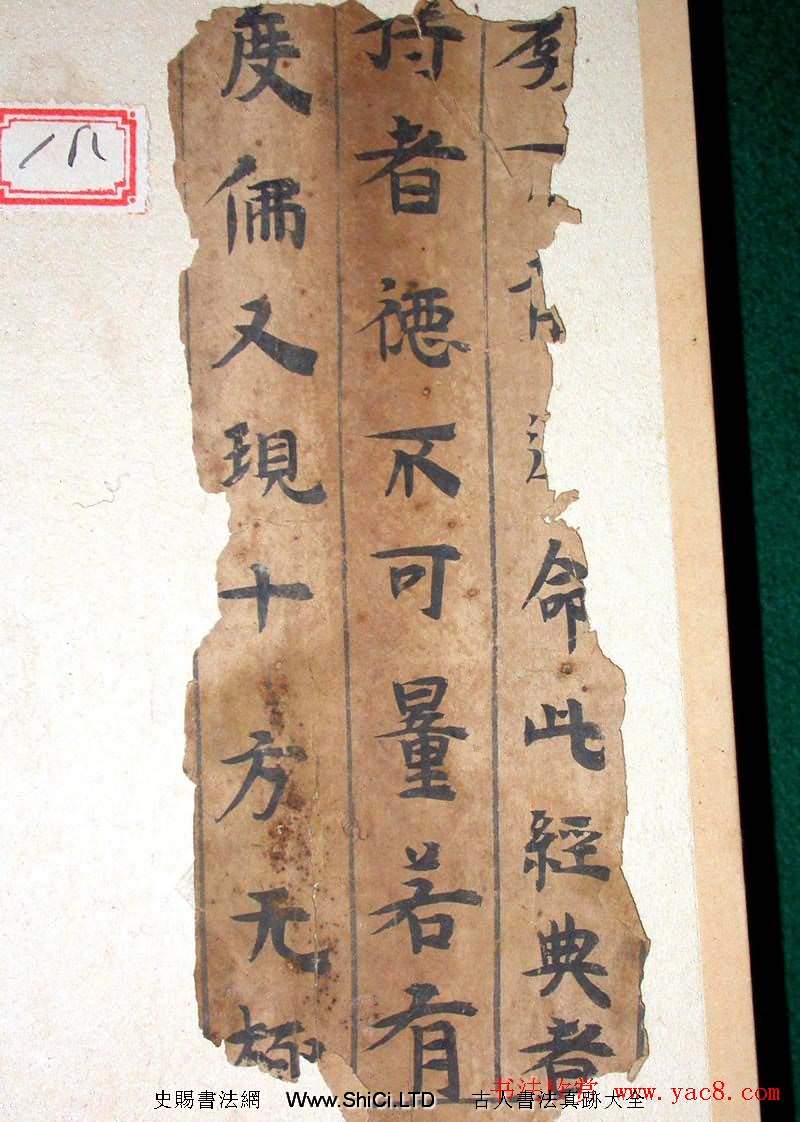 命此經典者
持者德不可量若有
度備又現十方无
书法欣赏 www.yac8.com
史賜書法網 Www.ShiCi.LTD 古人書法真跡大全